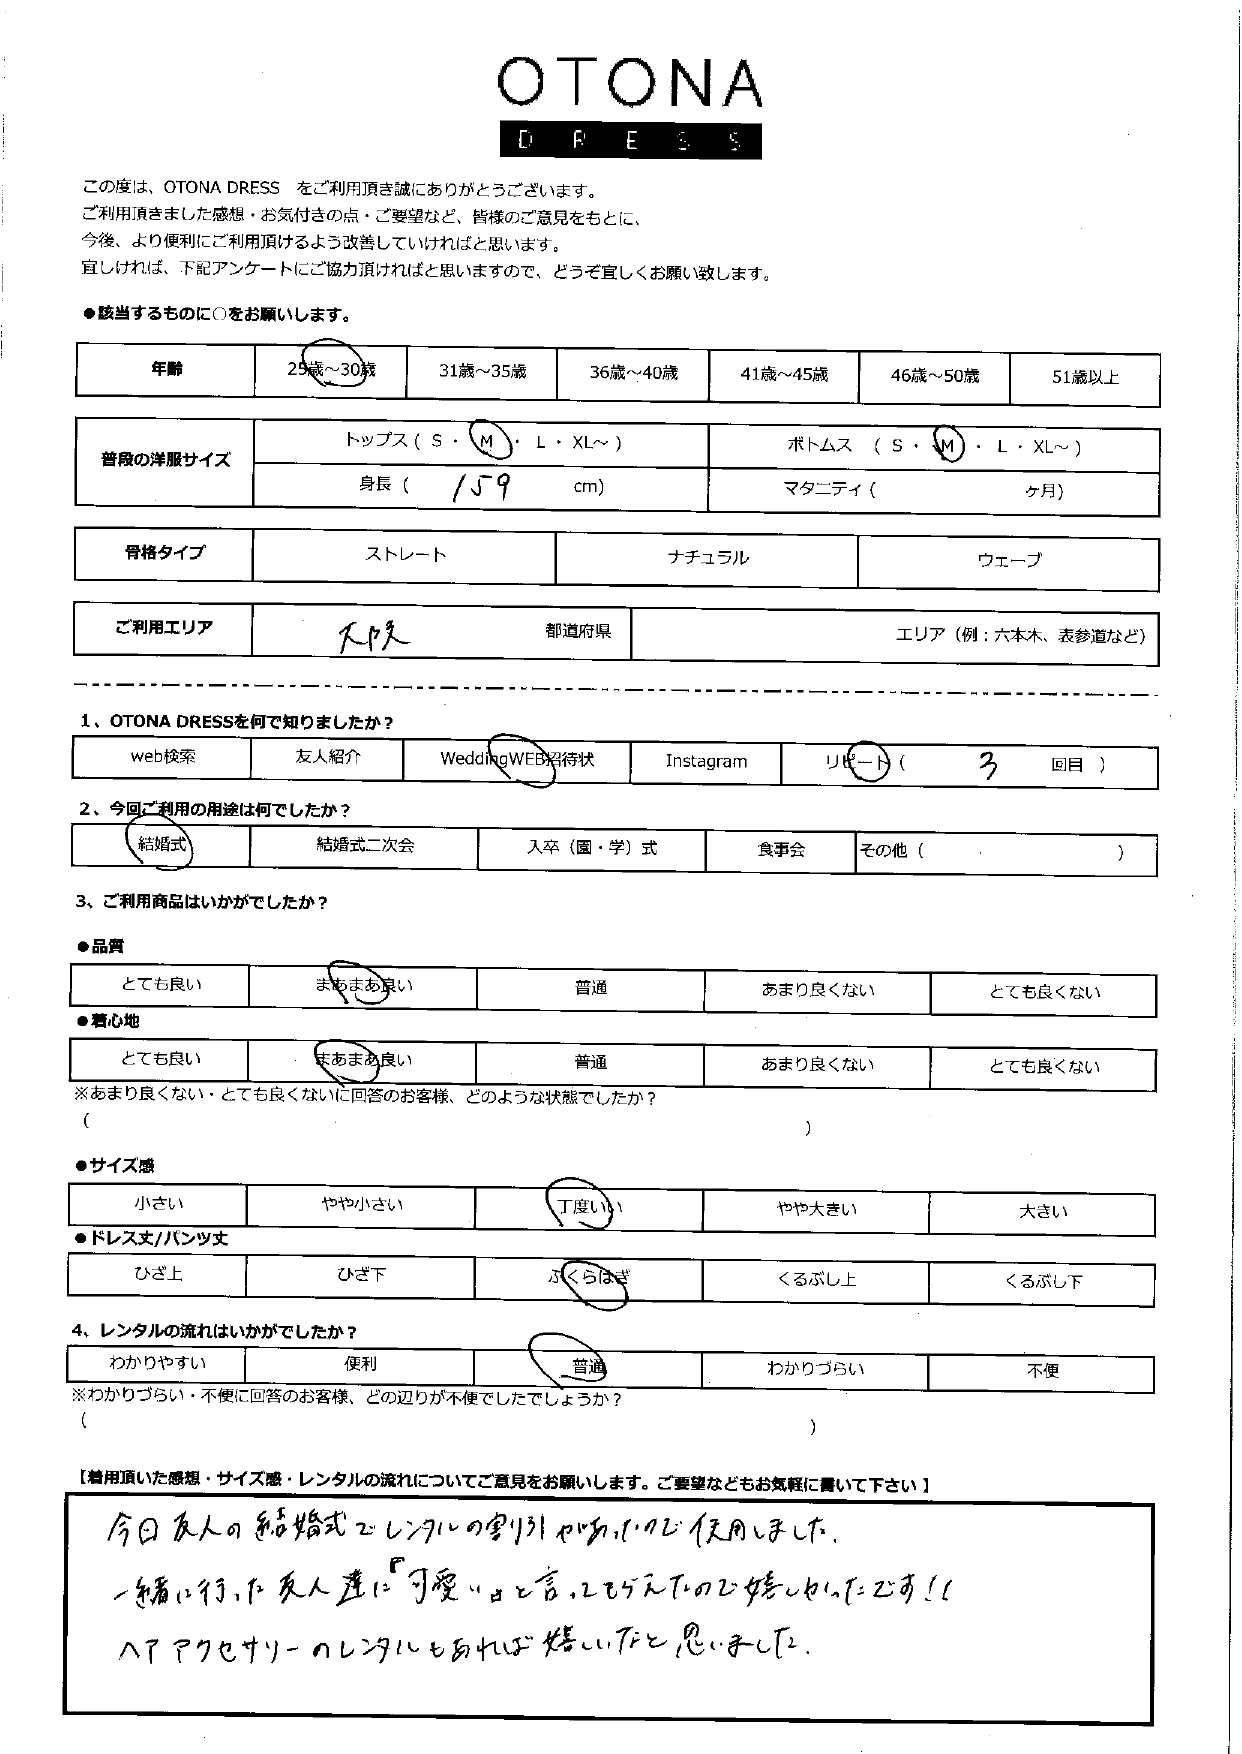 OTONA
DRESS
この度は、OTONA DRESS をご利用頂き誠にありがとうございます。
ご利用頂きました感想・お気付きの点・ご要望など、皆様のご意見をもとに、
今後、より便利にご利用頂けるよう改善していければと思います。
宜しければ、下記アンケートにご協力頂ければと思いますので、どうぞ宜しくお願い致します。
●該当するものに○をお願いします。
年齢 25歳～30歳 31歳～35歳 36歳～40歳 41歳～45歳 46歳～50歳 51歳以上
普段の洋服サイズ トップス ( S ・ M ・ L ・ XL～ ) ボトムス ( S ・ M ・ L ・ XL～ )
身長 ( 159 cm) マタニティ ( ヶ月)
骨格タイプ ストレート ナチュラル ウェーブ
ご利用エリア 大阪 都道府県 エリア（例：六本木、表参道など）
1、OTONA DRESSを何で知りましたか？
web検索 友人紹介 WeddingWEB招待状 Instagram リピート ( 3 回目 )
2、今回ご利用の用途は何でしたか？
結婚式 結婚式二次会 入卒（園・学）式 食事会 その他 ( )
3、ご利用商品はいかがでしたか？
●品質
とても良い まあまあ良い 普通 あまり良くない とても良くない
●着心地
とても良い まあまあ良い 普通 あまり良くない とても良くない
※あまり良くない・とても良くないに回答のお客様、どのような状態でしたか？
( )
●サイズ感
小さい やや小さい 丁度いい やや大きい 大きい
●ドレス丈/パンツ丈
ひざ上 ひざ下 ふくらはぎ くるぶし上 くるぶし下
4、レンタルの流れはいかがでしたか？
わかりやすい 便利 普通 わかりづらい 不便
※わかりづらい・不便に回答のお客様、どの辺りが不便でしたでしょうか？
( )
【着用頂いた感想・サイズ感・レンタルの流れについてご意見をお願いします。ご要望などもお気軽に書いて下さい】
今日友人の結婚式でレンタルの割引があったので使用しました。
一緒に行った友人達に『可愛い』と言ってもらえたので嬉しかったです!!
ヘアアクセサリーのレンタルもあれば嬉しいなと思いました。